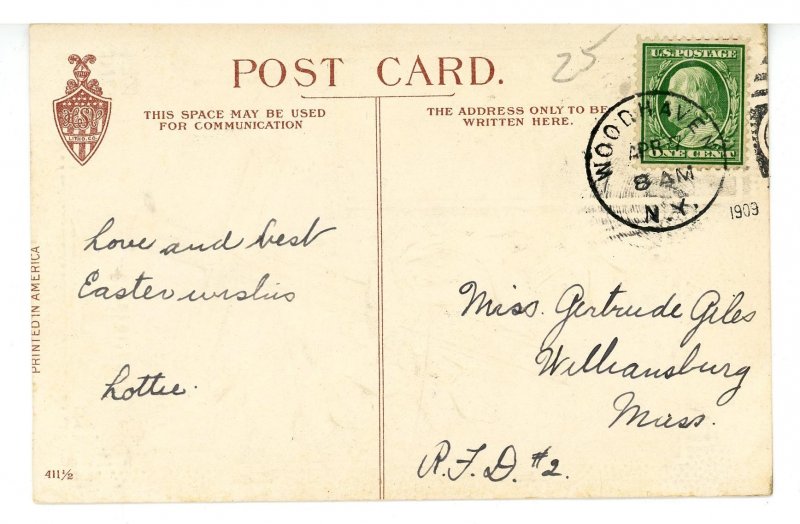 25
POST CARD.
THIS SPACE MAY BE USED
FOR COMMUNICATION
THE ADDRESS ONLY TO BE
WRITTEN HERE.
U.S. POSTAGE
ONE CENT
WOODHAVEN
APR
8 AM
N.Y.
1909
LITHO. CO.
PRINTED IN AMERICA
Love and best
Easter wishes
Lottie.
Miss. Gertrude Giles
Williamsburg
Mass.
R.F.D. #2.
411½